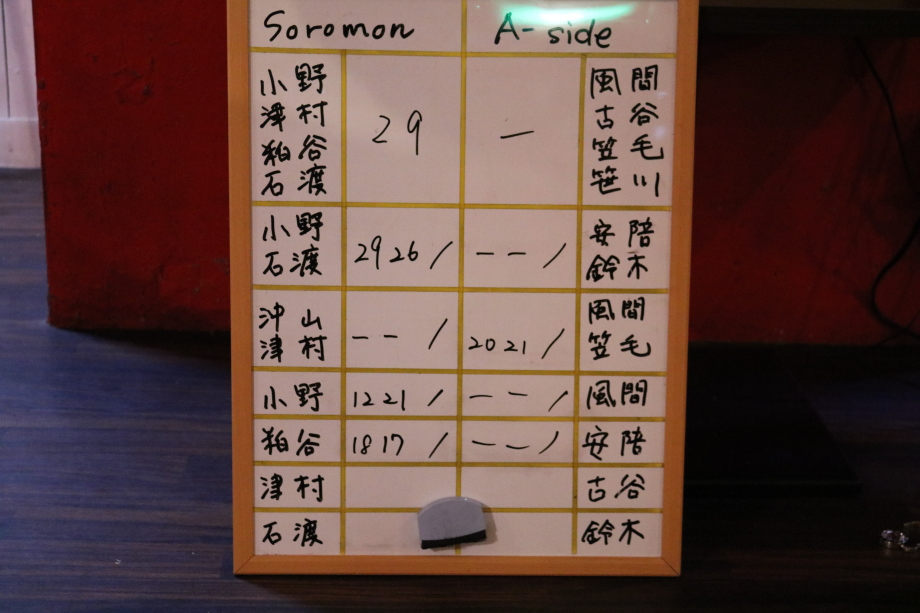 Soromon A-side
小野 風間
津村 古谷
粕谷 29 － 笠毛
石渡 笹川
小野 安陪
石渡 2926/ －－/ 鈴木
沖山 風間
津村 －－/ 2021/ 笠毛
小野 1221/ －－/ 風間
粕谷 1817/ －－/ 安陪
津村 古谷
石渡 鈴木